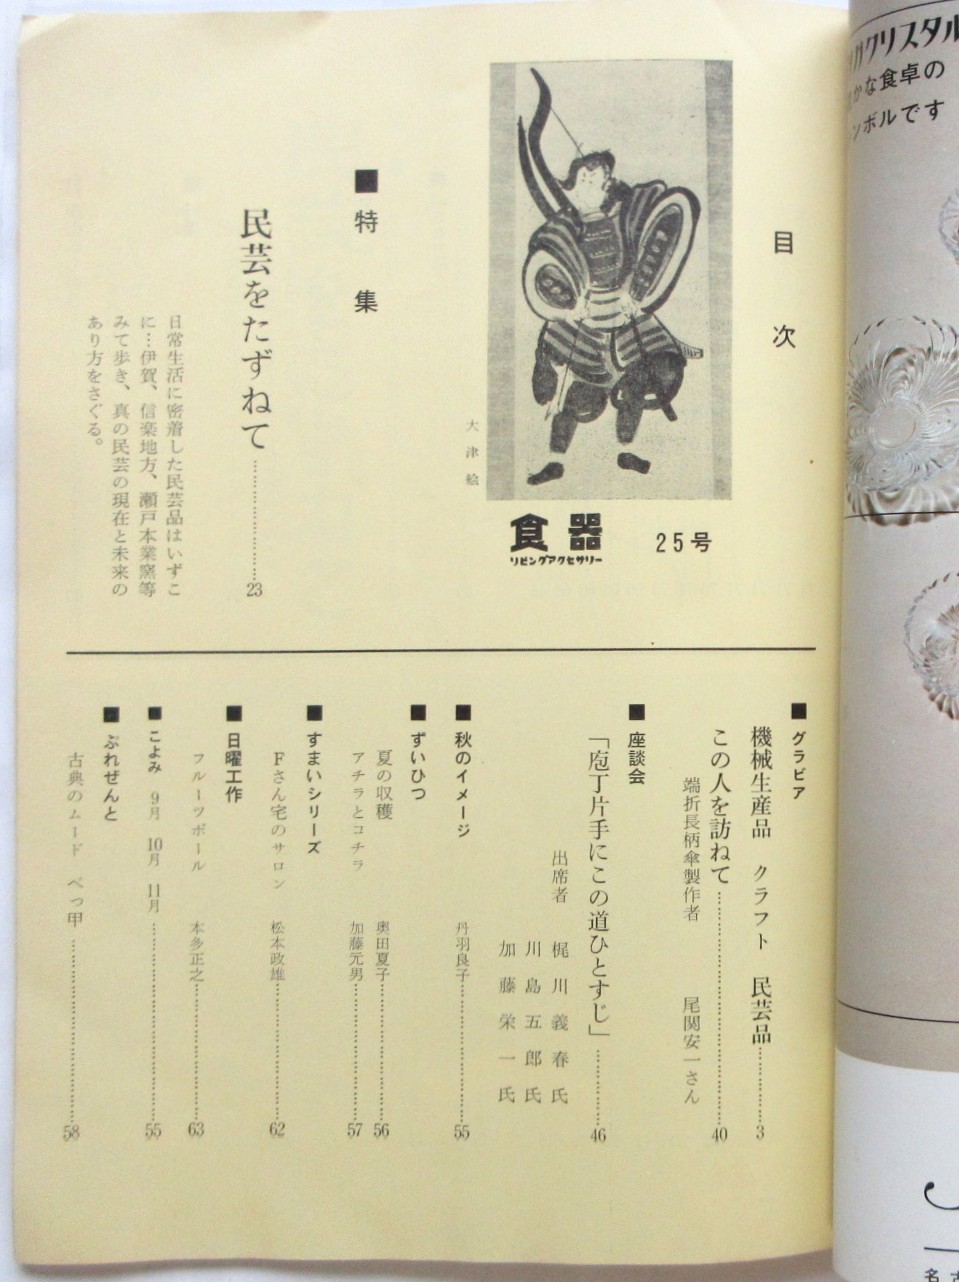 目次
食器
リビングアクセサリー
25号
大津絵
■特集
民芸をたずねて……………23
日常生活に密着した民芸品はいずこ
に…伊賀、信楽地方、瀬戸本業窯等
みて歩き、真の民芸の現在と未来の
あり方をさぐる。
■グラビア
機械生産品 クラフト 民芸品……………3
この人を訪ねて……………40
端折長柄傘製作者 尾関安一さん
■座談会
「庖丁片手にこの道ひとすじ」……………46
出席者 梶川義春氏
川島五郎氏
加藤栄一氏
■秋のイメージ 丹羽良子……………55
■ずいひつ
夏の収穫 奥田夏子……………56
アチラとコチラ 加藤元男……………57
■すまいシリーズ
Fさん宅のサロン 松本政雄……………62
■日曜工作
フルーツボール 本多正之……………63
■こよみ 9月 10月 11月……………55
■ぷれぜんと
古典のムード べっ甲……………58
クリスタル
かな食卓の
ンボルです